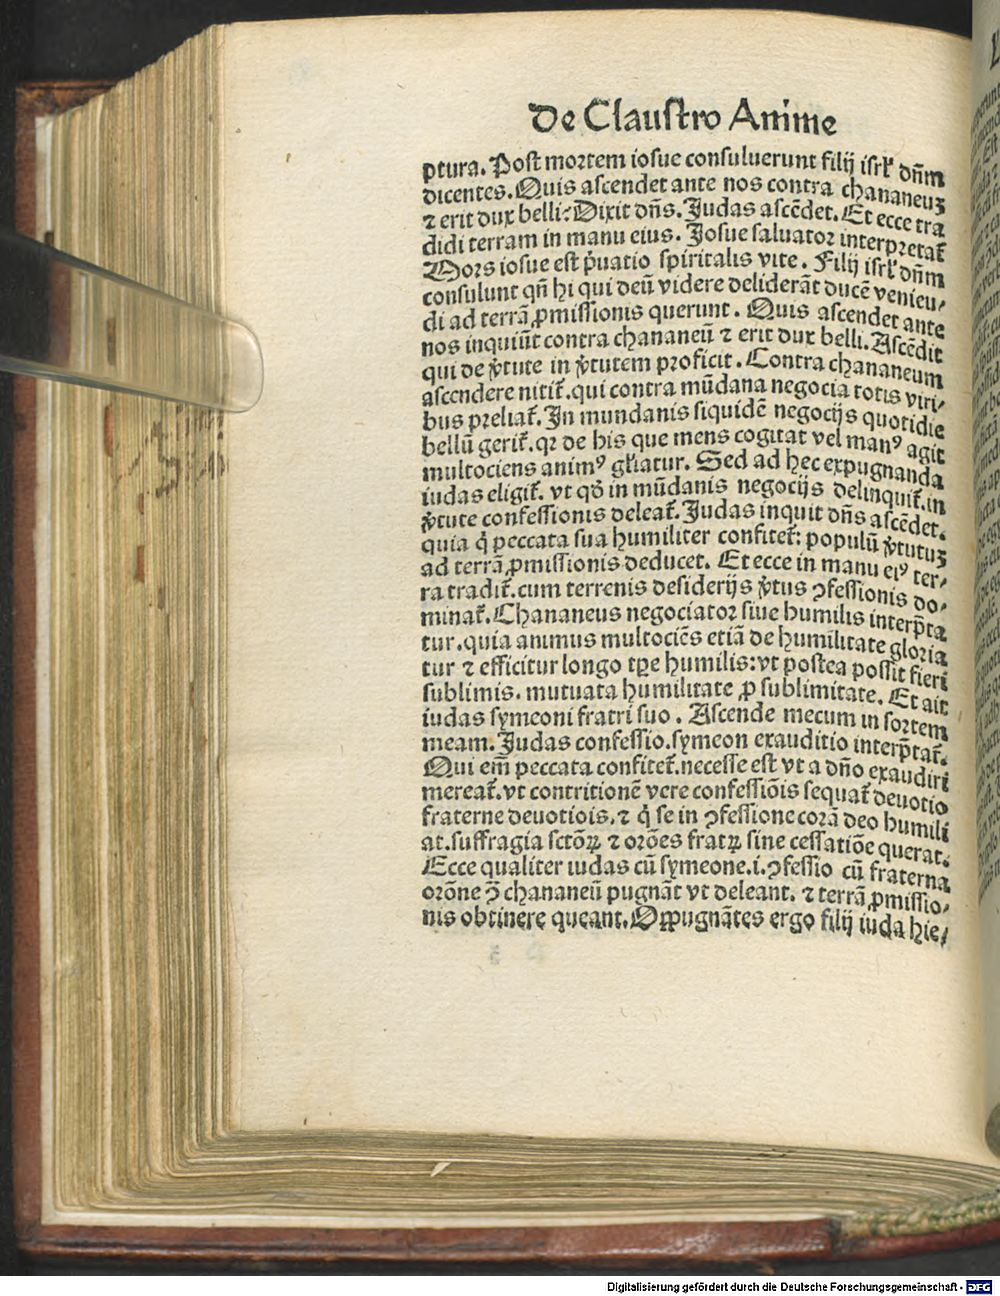 De Claustro Anime
ptura. Post mortem iosue consuluerunt filij isrl' dn̄m
dicentes. Quis ascendet ante nos contra chananeuꝫ
⁊ erit dux belli? Dixit dn̄s. Judas ascēdet. Et ecce tra
didi terram in manu eius. Josue saluator interpretat᷑
Mors iosue est p̄uatio spiritalis vite. Filij isrl' dn̄m
consulunt qn̄ hi qui deū videre desiderāt ducē venieu/
di ad terrā ꝓmissionis querunt. Quis ascendet ante
nos inquiūt contra chananeū ⁊ erit dux belli. Ascēdit
qui de v̓tute in v̓tutem proficit. Contra chananeum
ascendere nitit᷑. qui contra mūdana negocia totis viri/
bus preliat᷑. In mundanis siquidē negocijs quotidie
bellū gerit᷑. qꝛ de his que mens cogitat vel manꝰ agit
multociens animꝰ gl'iatur. Sed ad hec expugnanda
iudas eligit᷑. vt qd̓ in mūdanis negocijs delinquit᷑. in
v̓tute confessionis deleat᷑. Judas inquit dn̄s ascēdet.
quia q̓ peccata sua humiliter confitet᷑: populū v̓tutuꝫ
ad terrā ꝓmissionis deducet. Et ecce in manu eiꝰ ter/
ra tradit᷑. cum terrenis desiderijs v̓tus ꝯfessionis do/
minat᷑. Chananeus negociator siue humilis interp̄ta
tur. quia animus multociēs etiā de humilitate gloria
tur ⁊ efficitur longo tp̄e humilis: vt postea possit fieri
sublimis. mutuata humilitate ꝓ sublimitate. Et ait
iudas symeoni fratri suo. Ascende mecum in sortem
meam. Judas confessio. symeon exauditio interp̄tat᷑.
Qui em̄ peccata confitet᷑. necesse est vt a dn̄o exaudiri
mereat᷑. vt contritionē vere confessiōis sequat᷑ deuotio
fraterne deuotiois. ⁊ q̓ se in ꝯfessione corā deo humili
at. suffragia sctōꝝ ⁊ orōes fratꝝ sine cessatiōe querat.
Ecce qualiter iudas cū symeone. i. ꝯfessio cū fraterna
orōne ꝯ̄ chananeū pugnāt vt deleant. ⁊ terrā ꝓmissio/
nis obtinere queant. Oppugnātes ergo filij iuda hie/
Digitalisierung gefördert durch die Deutsche Forschungsgemeinschaft - DFG